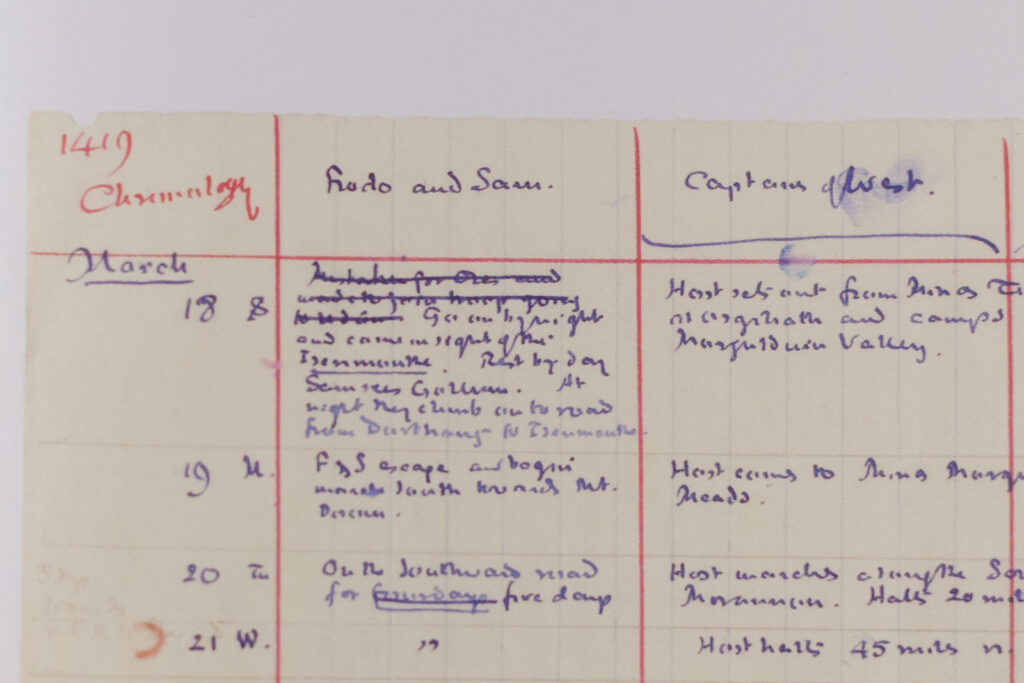 1419
Chronology
Frodo and Sam.
Captains of West.
March
18 S
Mistaken for Orcs and
made to join troop going
to Udûn Go on by night
and come in sight of the
Isenmouthe. Rest by day
Sam sees Gollum. At
night they climb on to road
from Durthang to Isenmouthe.
Host sets out from Minas Ti
at Osgiliath and camps
Morgulduin Valley.
19 M.
F & S escape and begin
march South towards Mt.
Doom.
Host comes to Minas Morgu
Meads.
20 Tu
On the Southward road
for four days five days
Host marches along the
Morannon. Halts 20 mil
21 W.
"
Host halts 45 miles n.